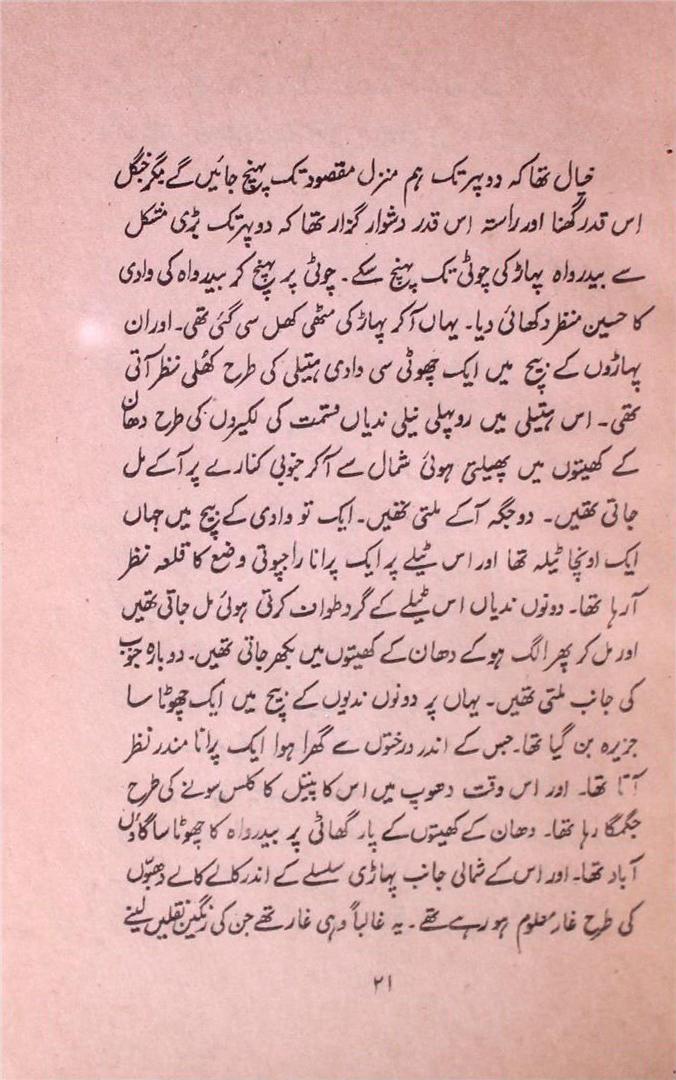 خیال تھا کہ دوپہر تک ہم منزل مقصود تک پہنچ جائیں گے مگر جنگل
اس قدر گھنا اور راستہ اس قدر دشوار گزار تھا کہ دوپہر تک بڑی مشکل
سے بیدرواہ پہاڑ کی چوٹی تک پہنچ سکے۔ چوٹی پر پہنچ کر بیدرواہ کی وادی
کا حسین منظر دکھائی دیا۔ یہاں آ کر پہاڑ کی مٹھی کھل سی گئی تھی۔ اور ان
پہاڑوں کے بیچ میں ایک چھوٹی سی وادی ہتیلی کی طرح کھُلی نظر آتی
تھی۔ اس ہتیلی میں روپہلی نیلی ندیاں قسمت کی لکیروں کی طرح دھان
کے کھیتوں میں پھیلتی ہوئی شمال سے آ کر جنوبی کنارے پر آ کے مل
جاتی تھیں۔ دو جگہ آ کے ملتی تھیں۔ ایک تو وادی کے بیچ میں جہاں
ایک اونچا ٹیلہ تھا اور اس ٹیلے پر ایک پرانا راجپوتی وضع کا قلعہ نظر
آ رہا تھا۔ دونوں ندیاں اس ٹیلے کے گرد طواف کرتی ہوئی مل جاتی تھیں
اور مل کر پھر الگ ہو کے دھان کے کھیتوں میں بکھر جاتی تھیں۔ دوبارہ جنوب
کی جانب ملتی تھیں۔ یہاں پر دونوں ندیوں کے بیچ میں ایک چھوٹا سا
جزیرہ بن گیا تھا۔ جس کے اندر درختوں سے گھرا ہوا ایک پرانا مندر نظر
آتا تھا۔ اور اس وقت دھوپ میں اس کا پیتل کا کلس سونے کی طرح
جگمگا رہا تھا۔ دھان کے کھیتوں کے پار گھاٹی پر بیدرواہ کا چھوٹا سا گاؤں
آباد تھا۔ اور اس کے شمالی جانب پہاڑی سلسلے کے اندر کالے کالے دھبّوں
کی طرح غار معلوم ہو رہے تھے۔ یہ غالباً وہی غار تھے جن کی رنگین نقلیں لینے
۲۱